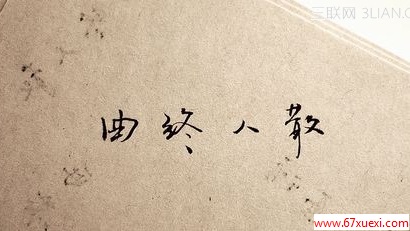 三联网 3LIAN.COM
曲终人散
www.67xuexi.com